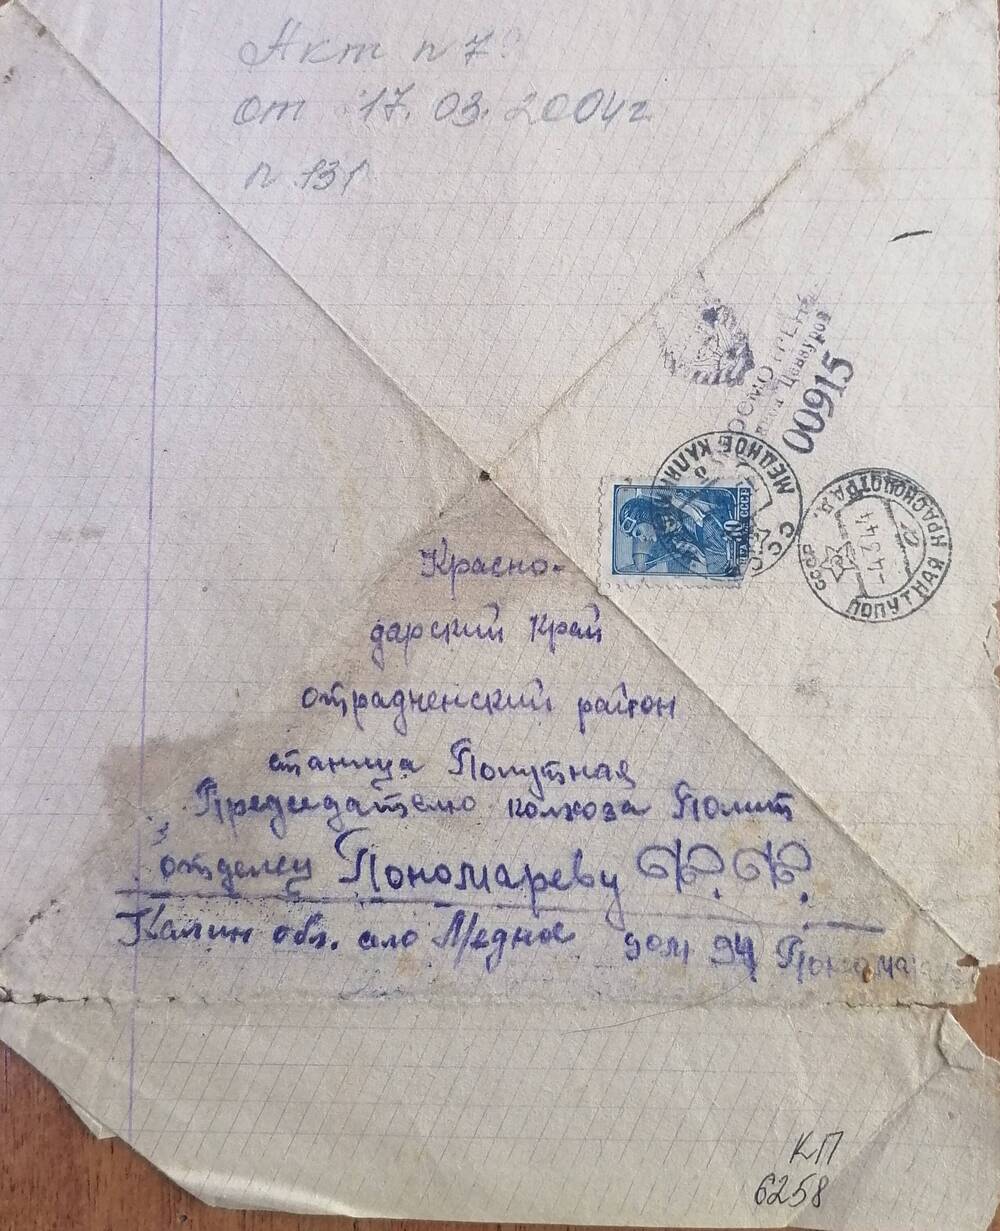 Акт п 7
от 17.03.2004г
п 131
ПРОСМОТРЕНО
Военной Цензурой
00915
МЕДНОЕ КАЛИН
СССР
30
ПОЧТА СССР
ПОПУТНАЯ КРАСНОД
СССР
-4 2 44
Красно-
дарский Край
отрадненский район
станица Попутная
Председателю колхоза Полит
отделец Пономареву Ф. Ф.
Калин обл. село Медное дом 94 Понома
КП
6258